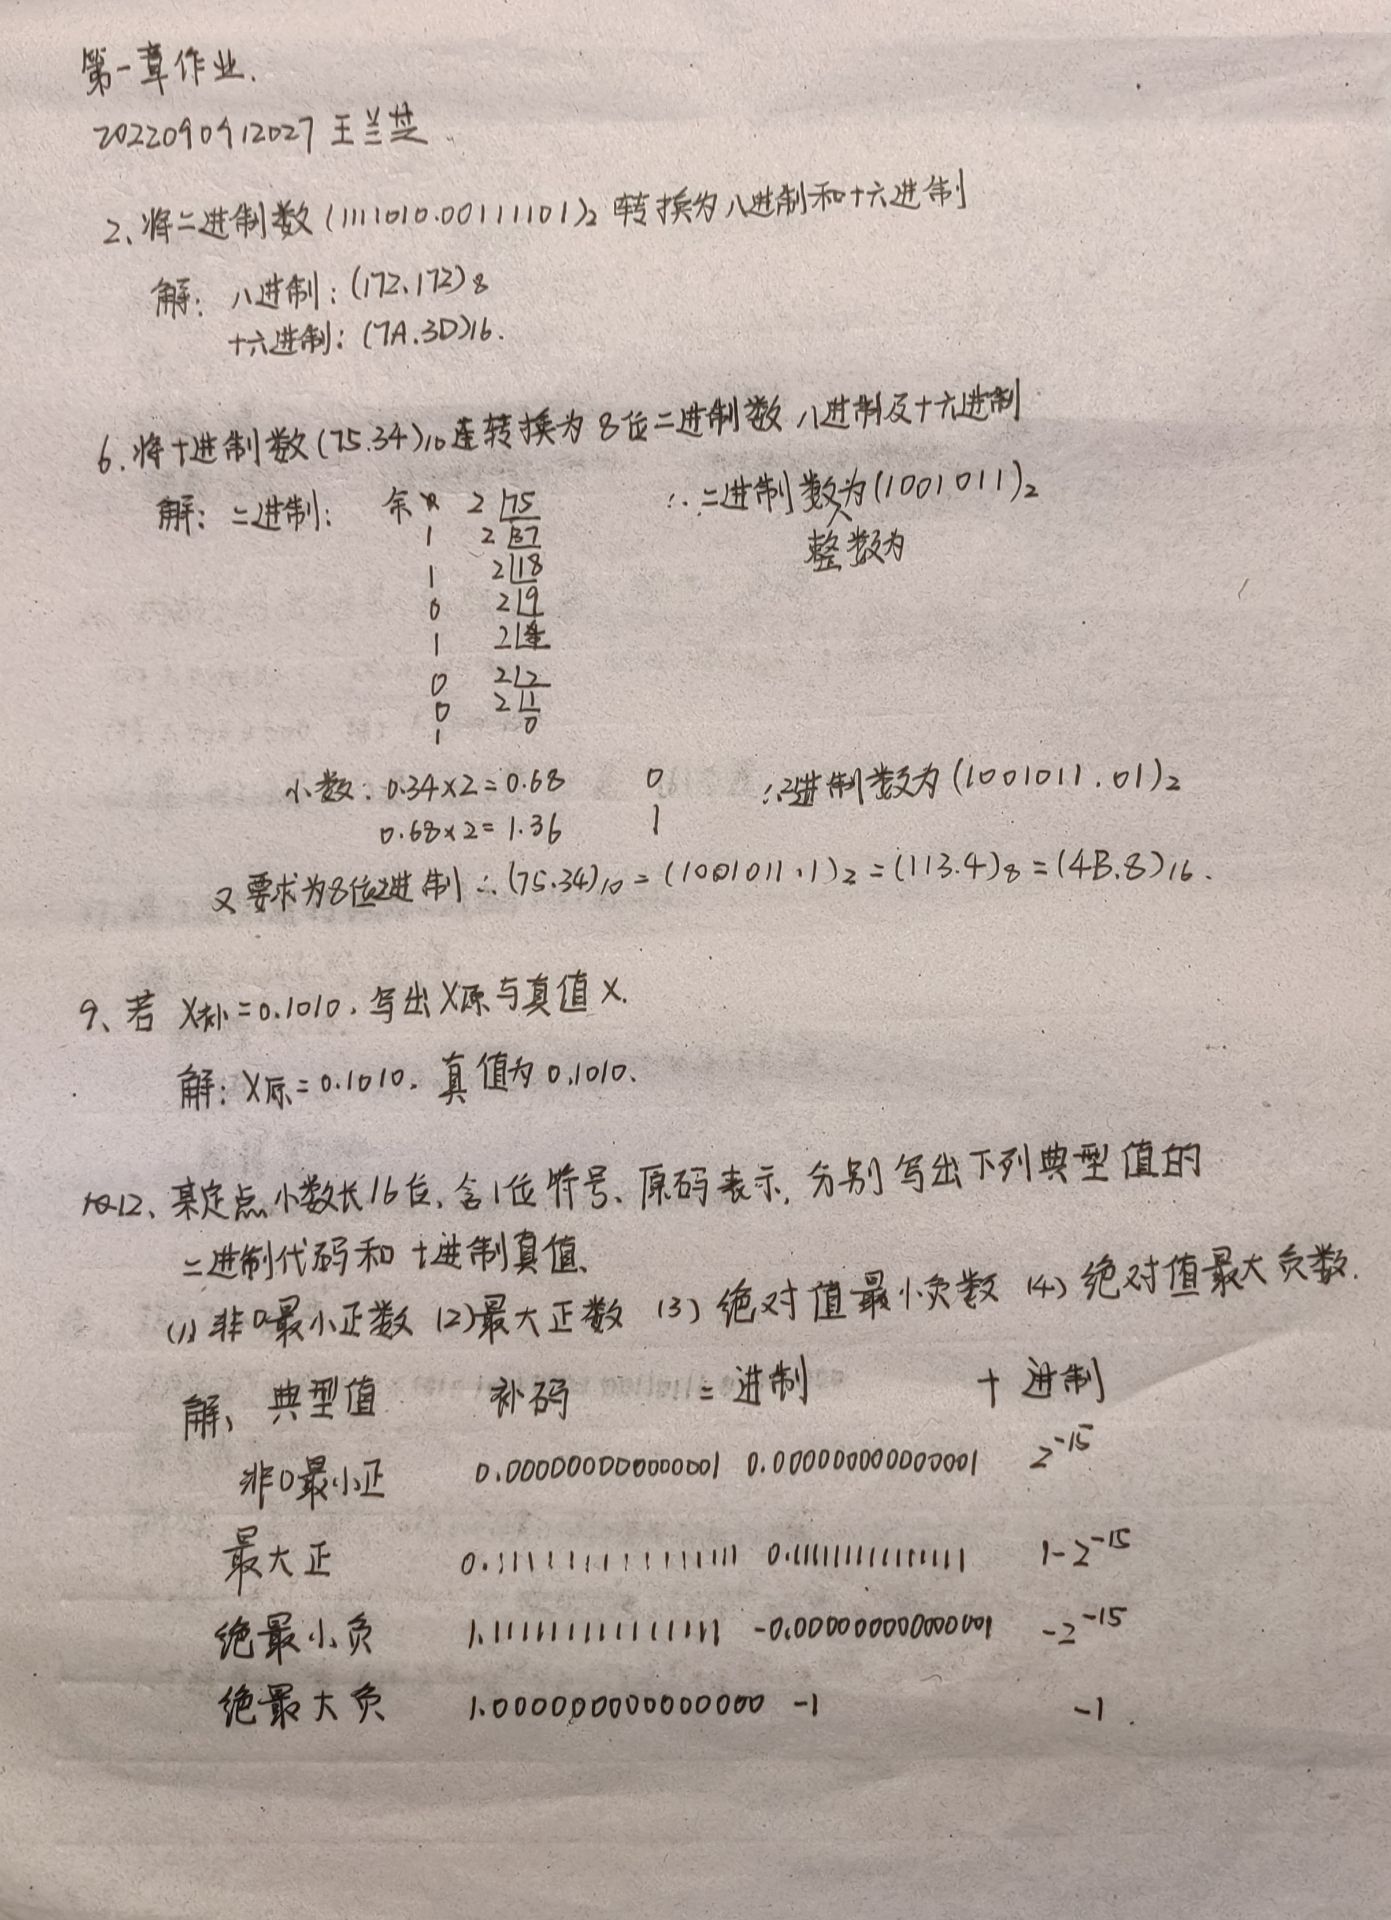 第一章作业.
2022090912027 王兰芝
2、将二进制数(1111010.00111101)₂ 转换为八进制和十六进制
解: 八进制: (172.172)₈
十六进制: (7A.3D)₁₆.
6.将十进制数(75.34)₁₀转换为8位二进制数 八进制及十六进制
解: 二进制: 余 2 75 ∴二进制数为(1001011)₂
1 2 37 整数为
1 2 18
0 2 9
1 2
0 2 2
0 2 1
1 0
小数: 0.34×2=0.68 0 ∴二进制数为(1001011.01)₂
0.68×2=1.36 1
又要求为8位二进制 ∴(75.34)₁₀=(1001011.1)₂=(113.4)₈=(4B.8)₁₆.
9、若 X补=0.1010,写出X原与真值X.
解: X原=0.1010. 真值为0.1010.
12、某定点小数长16位,含1位符号、原码表示,分别写出下列典型值的
二进制代码和十进制真值、
(1)非0最小正数 (2)最大正数 (3)绝对值最小负数 (4)绝对值最大负数.
解、典型值 补码 二进制 十进制
非0最小正 0.000000000000001 0.000000000000001 2⁻¹⁵
最大正 0.111111111111111 0.111111111111111 1-2⁻¹⁵
绝最小负 1.111111111111111 -0.000000000000001 -2⁻¹⁵
绝最大负 1.000000000000000 -1 -1.